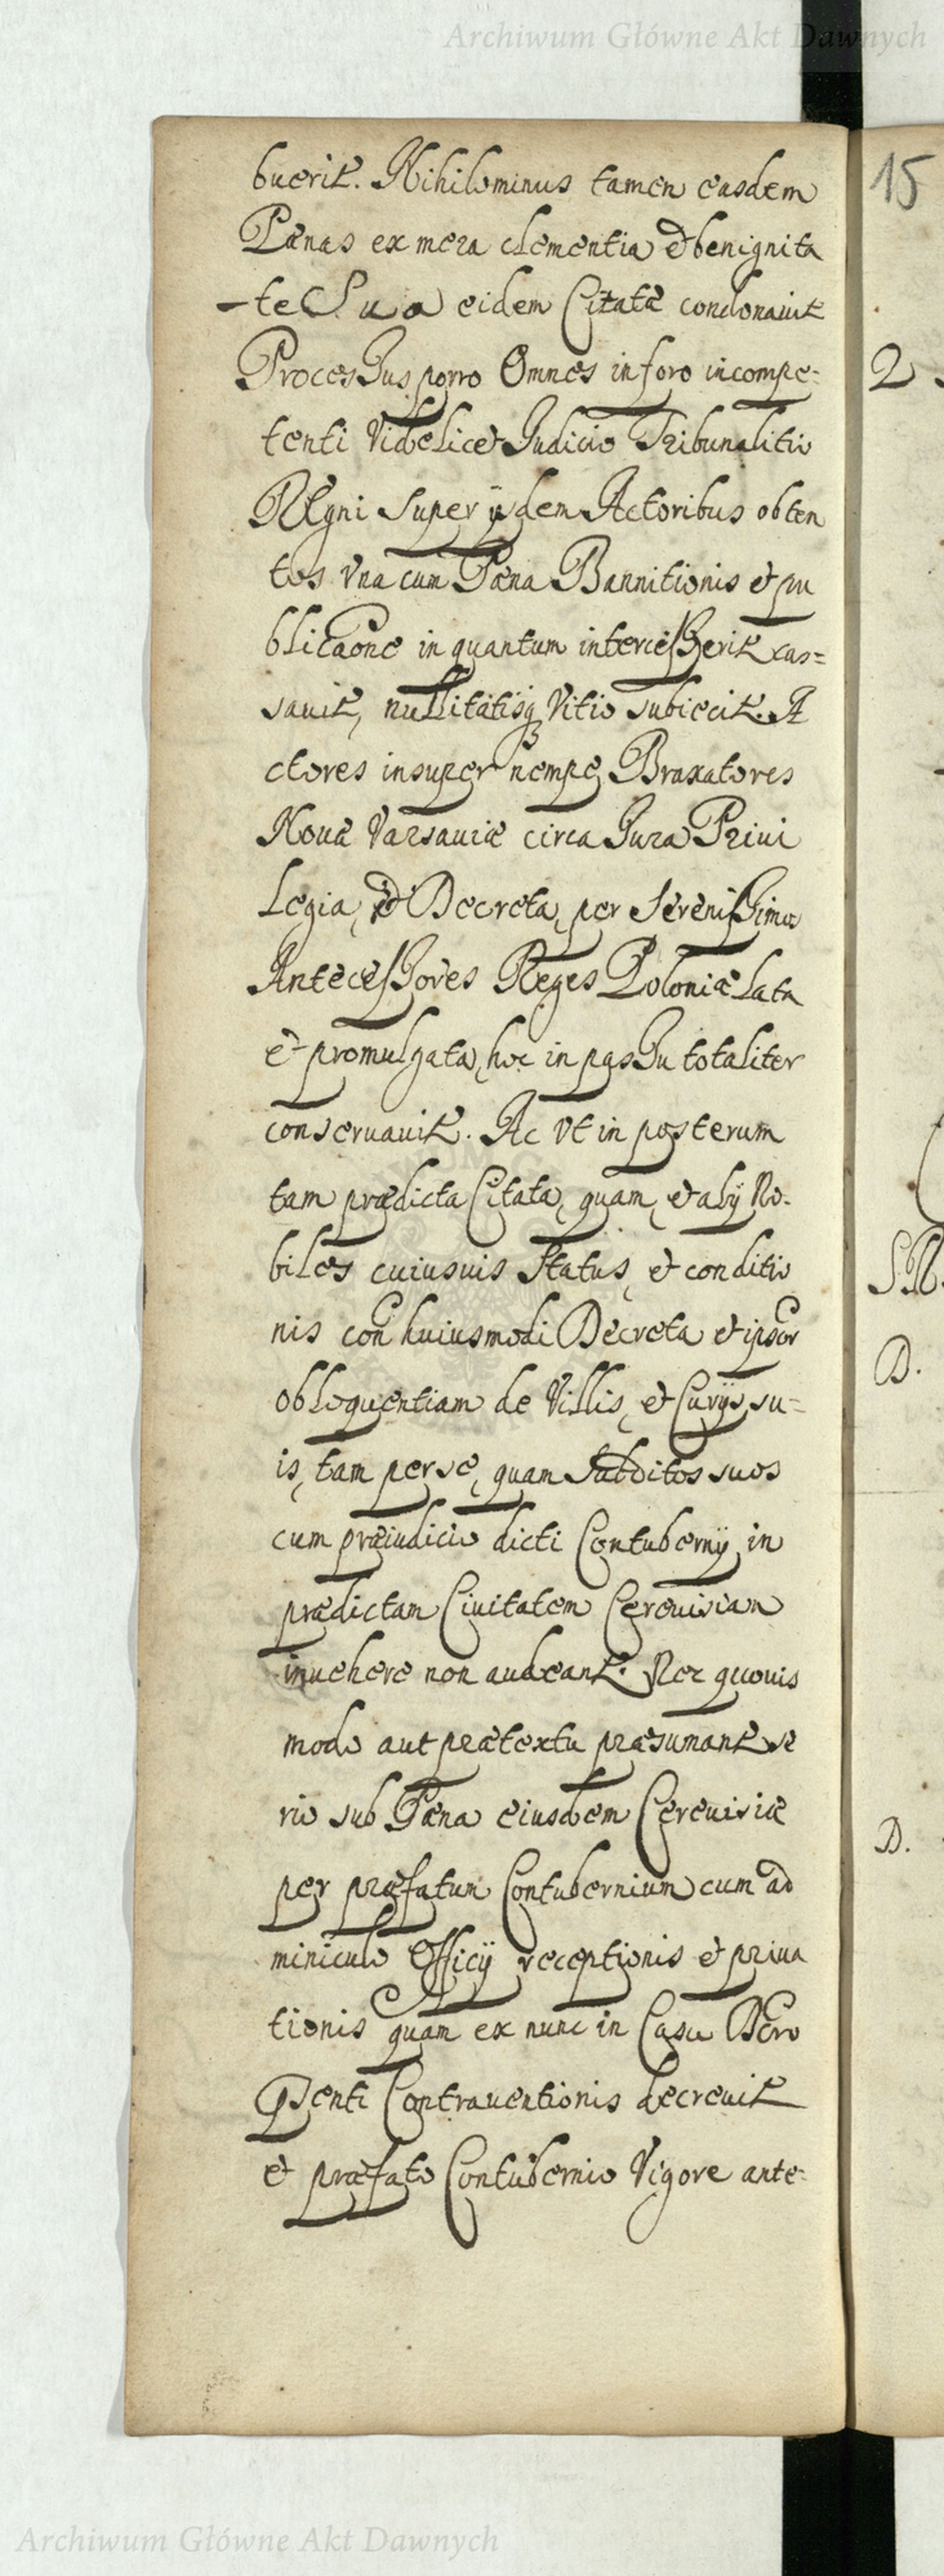 Archiwum Główne Akt Dawnych
buerit. Nihilominus tamen easdem
Pænas ex mera clementia et benignita
-te Sua eidem Citatæ condonauit
Processus porro Omnes in foro incompe=
tenti Videlicet Judicio Tribunalitio
Regni super ijsdem Actoribus obten
tos Vna cum Pæna Bannitionis et pu
blicaone in quantum intercesserit cas=
sauit, nullitatisq Vitio subiecit. A
ctores insuper nempe Braxatores
Nouæ Varsauiæ circa Jura Priui
Legia, et Decreta, per Serenissimos
Antecessores Reges Poloniæ Lata
et promulgata, hoc in passu totaliter
conseruauit. Ac Vt in posterum
tam prædicta Citata, quam, et alij No=
biles cuiusuis Status, et conditio
nis con huiusmodi Decreta et ipsor
obloquentiam de Villis, et Curijs su=
is, tam per se, quam Subditos suos
cum præiudicio dicti Contubernij in
prædictam Ciuitatem Cereuisiam
inuehere non audeant. Nec quouis
modo aut prætextu præsumant se
rio sub Pæna eiusdem Cereuisiæ
per præfatum Contubernium cum ad
miniculo Officij receptionis et priua
tionis quam ex nunc in Casu Decro
Psenti Contrauentionis decreuit
et præfato Contubernio Vigore ante=
15
2
D.
D.
Archiwum Główne Akt Dawnych